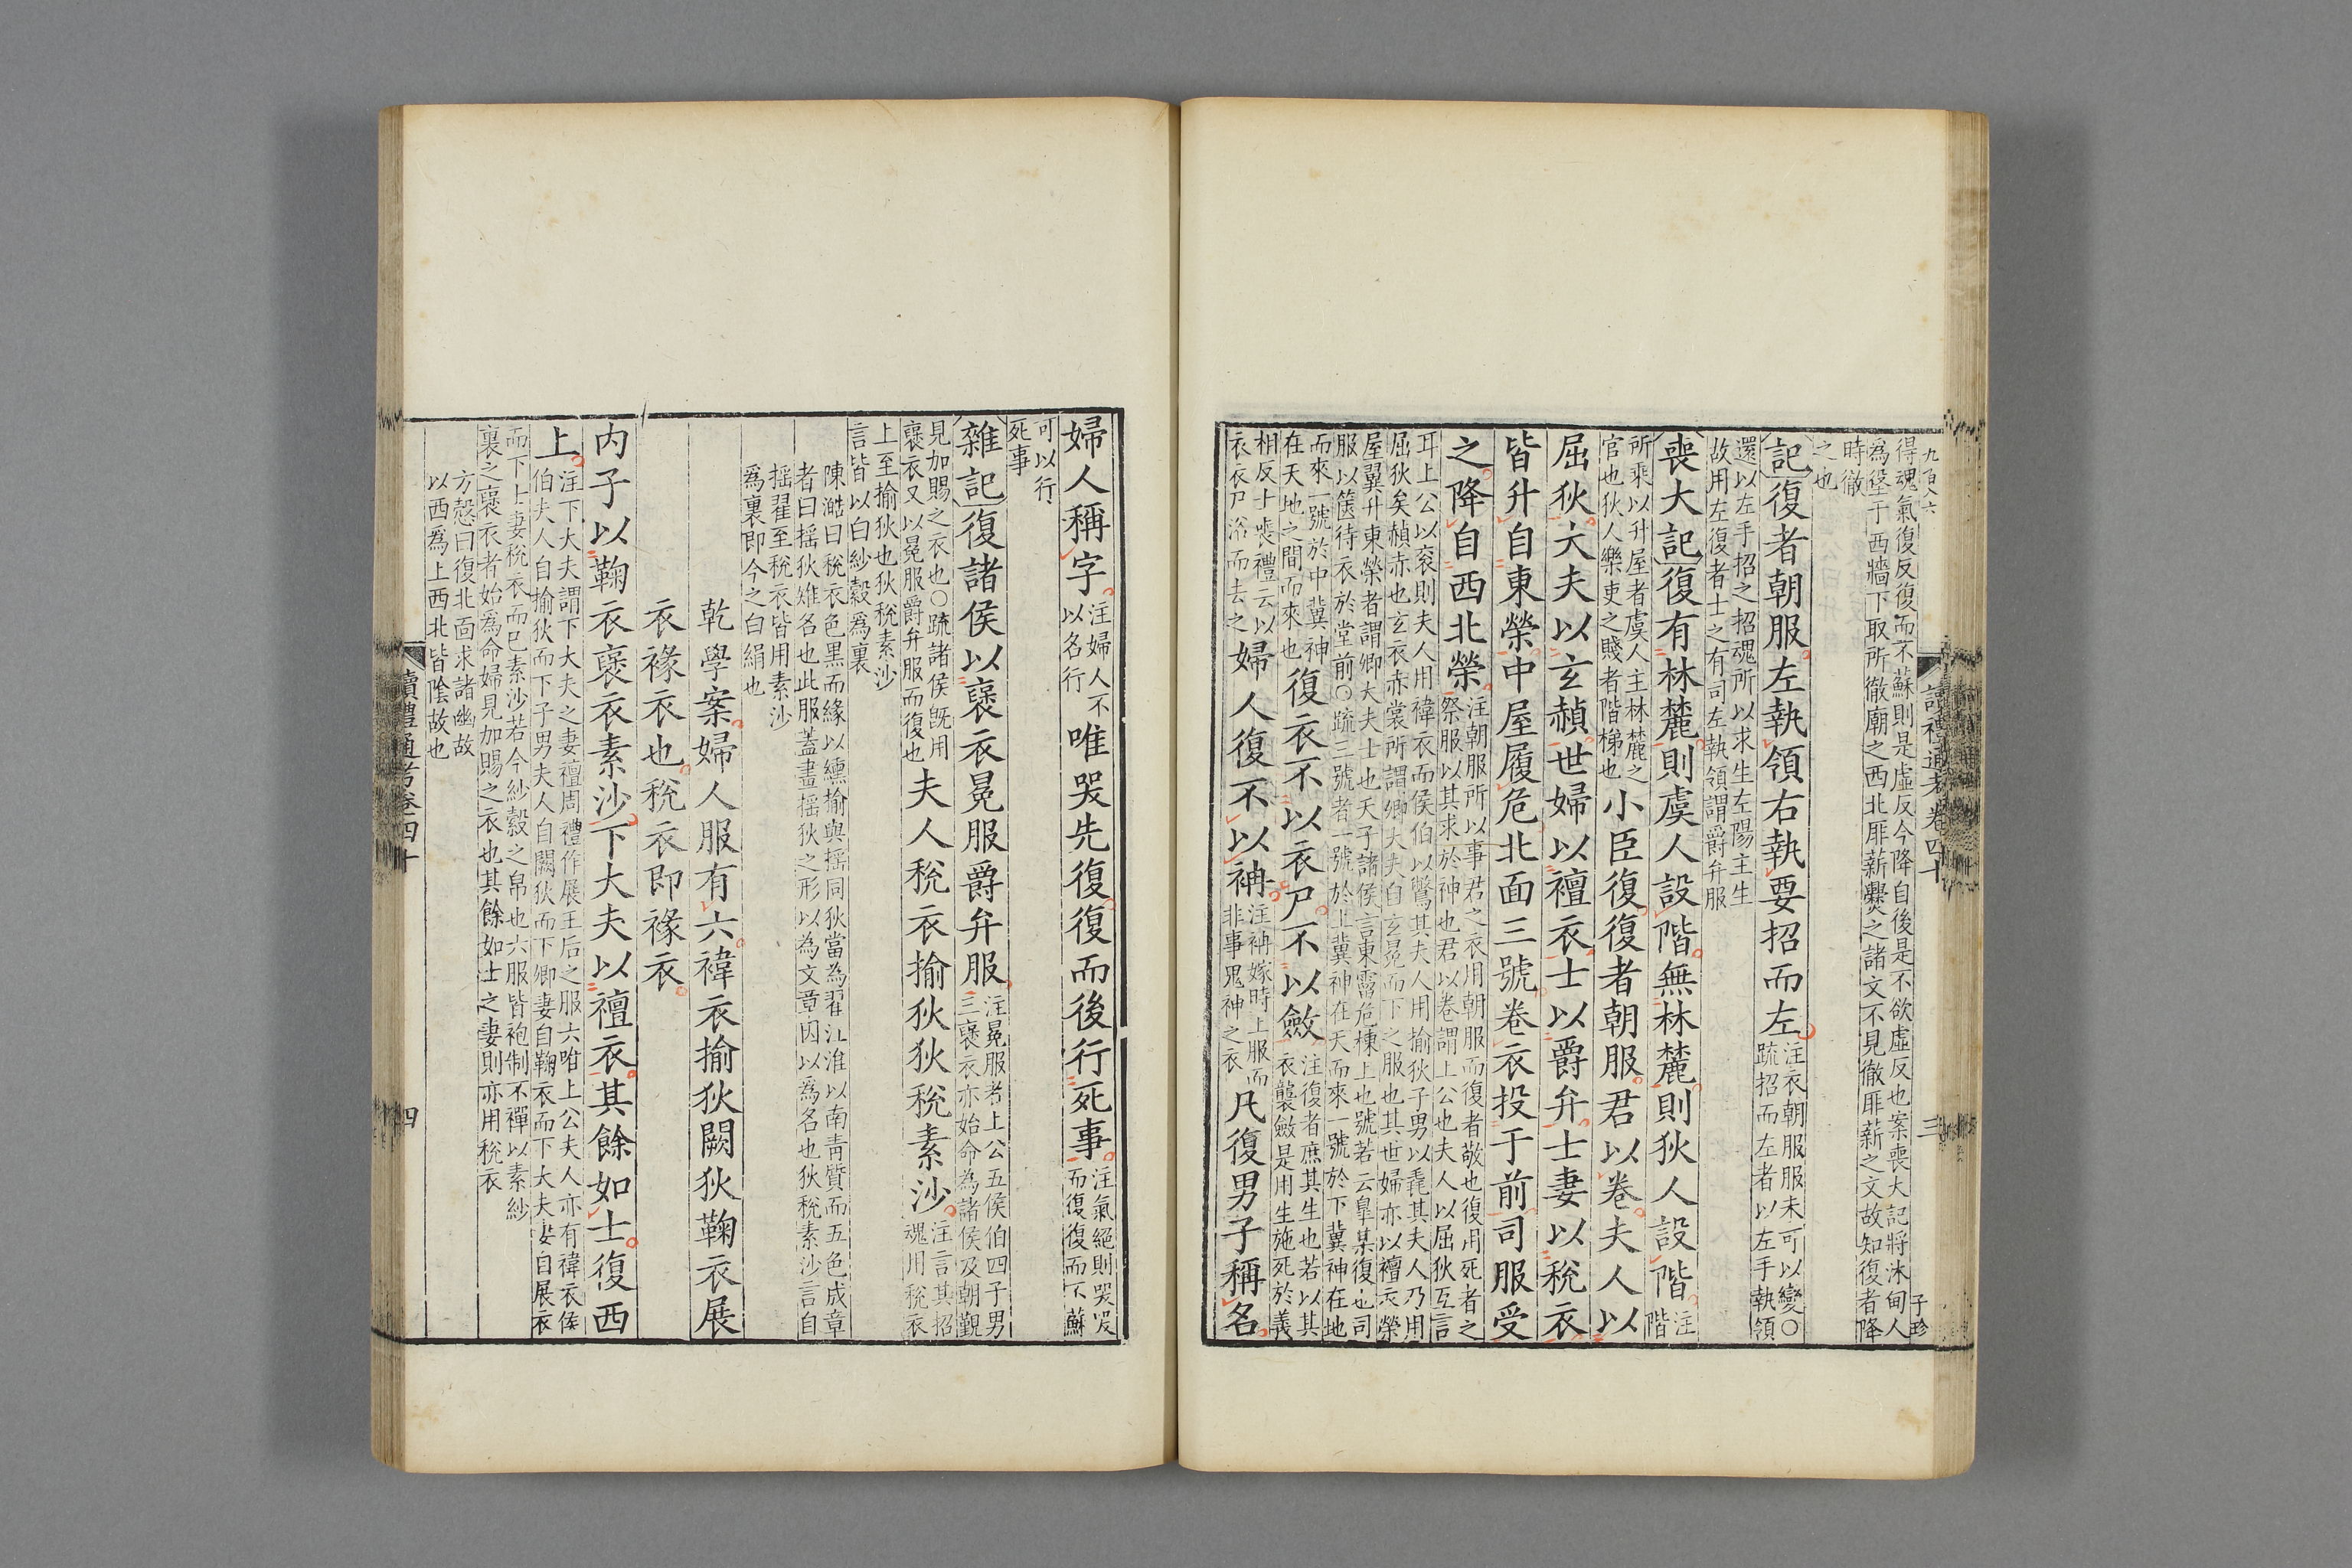 九百八六
得魂氣復反復而不蘇則是虛反今降自後是不欲虛反也案喪大記將沐甸人
為垼于西牆下取所徹廟之西北厞薪爨之諸文不見徹厞薪之文故知復者降
時徹
之也
記復者朝服左執領右執要招而左
注衣朝服服未可以變○疏招而左者以左手執領
還以左手招之招魂所以求生左陽主生
故用左復者士之有司左執領謂爵弁服
喪大記復有林麓則虞人設階無林麓則狄人設階
注階
所乘以升屋者虞人主林麓之
官也狄人樂吏之賤者階梯也
小臣復復者朝服君以卷夫人以
屈狄大夫以玄赬世婦以襢衣士以爵弁士妻以稅衣
皆升自東榮中屋履危北面三號卷衣投于前司服受
之降自西北榮
注朝服所以事君之衣用朝服而復者敬也復用死者之
祭服以其求於神也君以卷謂上公也夫人以屈狄互言
耳上公以衮則夫人用褘衣而侯伯以鷩其夫人用揄狄子男以毳其夫人乃用
屈狄矣赬赤也玄衣赤裳所謂卿大夫自玄冕而下之服也其世婦亦以襢衣榮
屋翼升東榮者謂卿大夫士也天子諸侯言東霤危棟上也號若云皋某復也司
服以篋待衣於堂前○疏三號者一號於上冀神在天而來一號於下冀神在地
而來一號於中冀神
在天地之間而來也
復衣不以衣尸不以斂
注復者庶其生也若以其
衣襲斂是用生施死於義
相反士喪禮云以
衣衣尸浴而去之
婦人復不以袡
注袡嫁時上服而
非事鬼神之衣
凡復男子稱名
讀禮通考卷四十
三
子珍
婦人稱字
注婦人不
以名行
唯哭先復復而後行死事
注氣絕則哭哭
而復復而不蘇
可以行
死事
雜記復諸侯以褒衣冕服爵弁服
注冕服者上公五侯伯四子男
三褒衣亦始命為諸侯及朝覲
見加賜之衣也○疏諸侯既用
褒衣又以冕服爵弁服而復也
夫人稅衣揄狄狄稅素沙
注言其招
魂用稅衣
上至揄狄也狄稅素沙
言皆以白紗縠為裏
陳澔曰稅衣色黑而緣以纁揄與搖同狄當為翟江淮以南青質而五色成章
者曰搖狄雉名也此服蓋畫搖狄之形以為文章因以為名也狄稅素沙言自
搖翟至稅衣皆用素沙
為裏即今之白絹也
乾學案婦人服有六褘衣揄狄闕狄鞠衣展
衣褖衣也稅衣即褖衣
內子以鞠衣褒衣素沙下大夫以襢衣其餘如士復西
上
注下大夫謂下大夫之妻襢周禮作展王后之服六唯上公夫人亦有褘衣侯
伯夫人自揄狄而下子男夫人自闕狄而下卿妻自鞠衣而下大夫妻自展衣
而下士妻稅衣而已素沙若今紗縠之帛也六服皆袍制不襌以素紗
裏之褒衣者始為命婦見加賜之衣也其餘如士之妻則亦用稅衣
方慤曰復北面求諸幽故
以西為上西北皆陰故也
讀禮通考卷四十
四